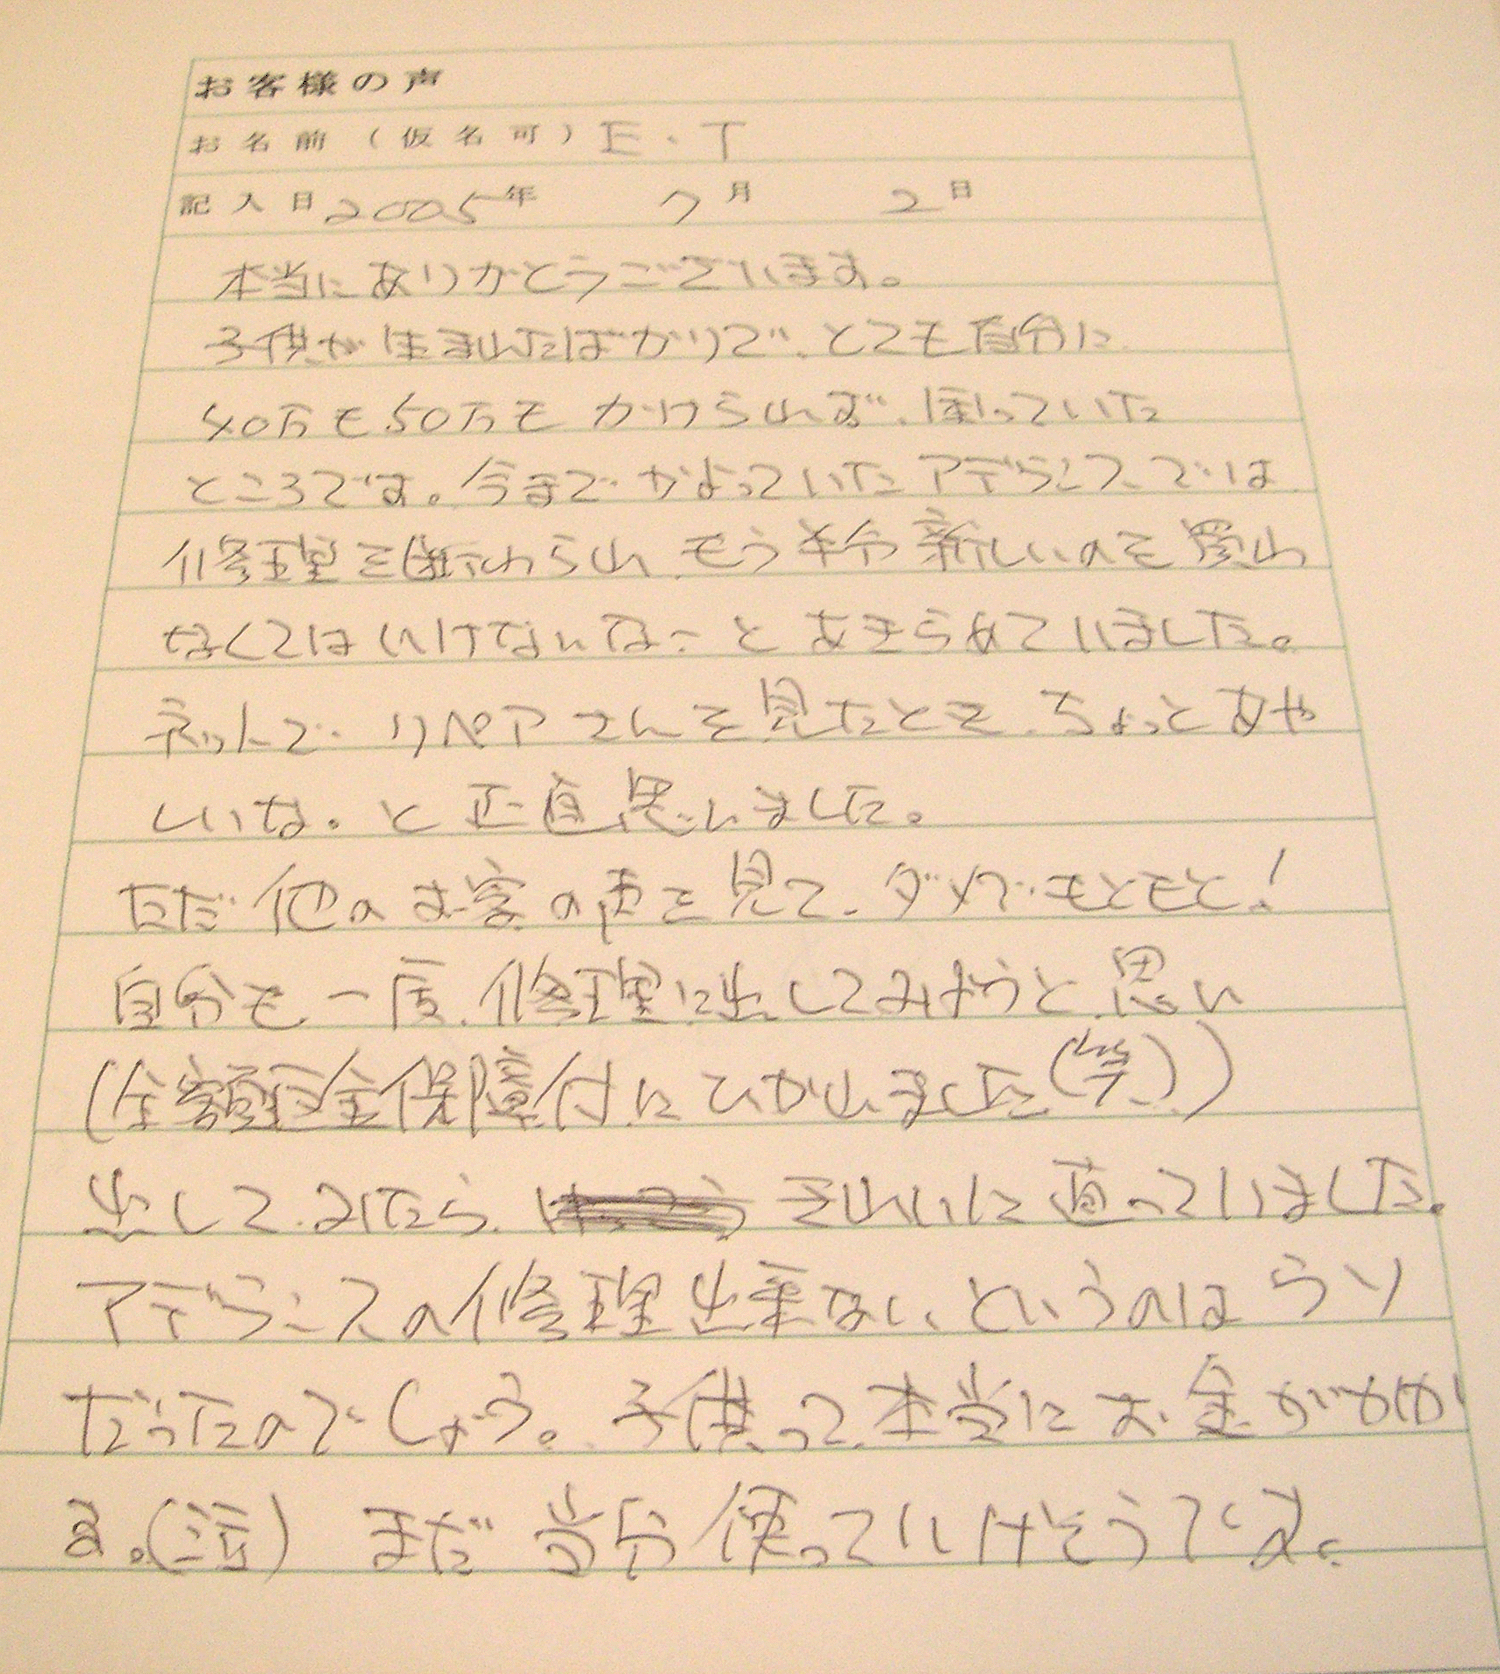 お客様の声
お名前(仮名可) E・T
記入日 2005年 7月 2日
本当にありがとうございます。
子供が生まれたばかりで、とても自分に
40万も50万も かけられず、ほっていた
ところです。今まで かよっていたアデランスでは
修理を断わられ もう 新しいのを買わ
なくてはいけないな…と あきらめていました。
ネットで リペアさんを見たとき、ちょっとあや
しいな。と 正直思いました。
ただ 他のお客の声を見て、ダメでもともと!
自分も一度、修理に出してみようと思い
(全額返金保障付にひかれました(笑))
出してみたら、 きれいに直っていました。
アデランスの修理出来ないというのはウソ
だったのでしょう。子供って本当にお金がかか
る。(泣) まだ当分使っていけそうです。